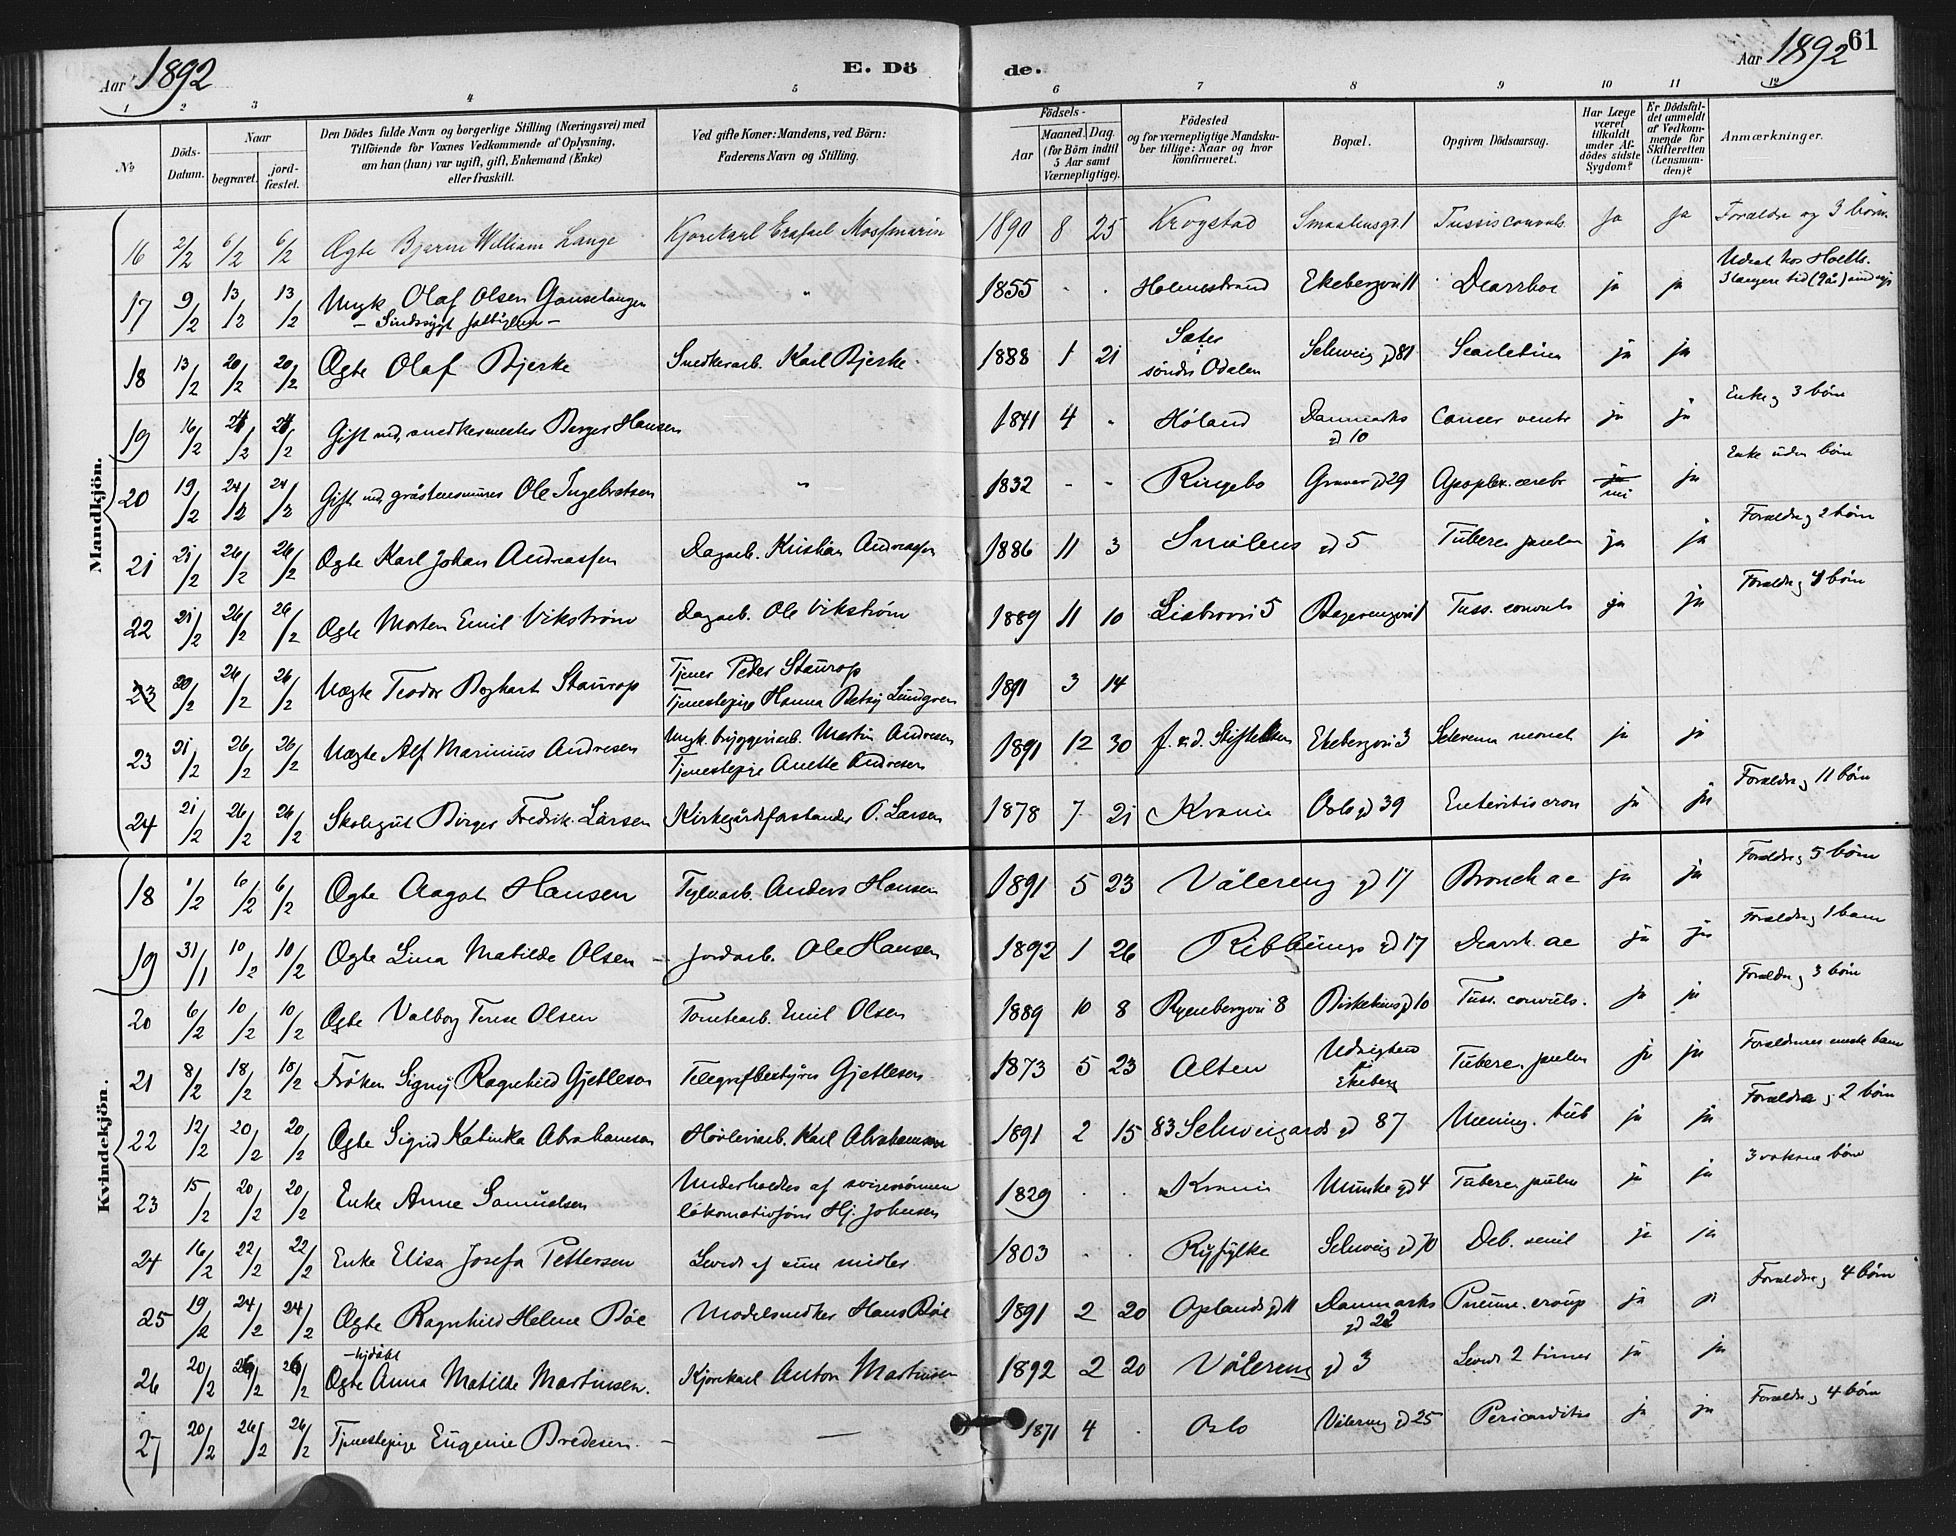 Aar 1892
E. Döde.
Aar 1892
61
1 2 3 4 5 6 7 8 9 10 11 12
No
Döds-Datum.
Naar
begravet.
jord-fæstet.
Den Dödes fulde Navn og borgerlige Stilling (Næringsvei) med
Tilföiende for Voxnes Vedkommende af Oplysning,
om han (hun) var ugift, gift, Enkemand (Enke)
eller fraskilt.
Ved gifte Koner: Mandens, ved Börn:
Faderens Navn og Stilling.
Födsels-
Aar
Maaned. Dag.
(for Börn indtil
5 Aar samt
Værnepligtige).
Födested
og for værnepligtige Mandska-
ber tillige: Naar og hvor
konfirmeret.
Bopæl.
Opgiven Dödsaarsag.
Har Læge
været
tilkaldt
under Af-
dödes sidste
Sygdom?
Er Dödsfal-
det anmeldt
af Vedkom-
mende for
Skifteretten
(Lensman-
den)?
Anmærkninger.
Mandkjön.
16 2/2 6/2 6/2 Ægte Bjarne William Lange Kjørekarl 1890 8 25 Krogstad Smaalensgd. 1 Tussis convuls. ja ja Forældre og 3 børn
17 9/2 13/2 13/2 Ungk. Olaf Olsen " 1855 - - Holmestrand Ekebergvei 11 Diarrhoe ja ja
18 13/2 20/2 20/2 Ægte Olaf Bjerke Snedkerarb. Karl Bjerke 1888 1 21 Sæter i søndre Odalen Schweig gd 81 Scarlatina ja ja
19 16/2 24/2 24/2 Gift md, snedkermester Berger Hansen 1841 4 - Høland Danmarks gd 10 Cancer ventr ja ja Enke og 3 børn
20 19/2 24/2 24/2 Gift md, gråstensmurer Ole Ingebretsen " 1832 - - Ringebo Grøner gd 29 Apoplex. cerebr ja nei ja Enke uden børn
21 21/2 26/2 26/2 Ægte Karl Johan Andreassen Dagarb. Kristian Andreassen 1886 11 3 Smålens gd 5 Tuberc. pulm ja ja Forældre og 2 børn
22 21/2 26/2 26/2 Ægte Morten Emil Vikstrøm Dagarb. Ole Vikstrøm 1889 11 10 5 Tuss. convuls ja ja Forældre og 4 børn
23 20/2 26/2 26/2 Uægte Teodor Staurop Tjener Peder Staurop
Tjenestepige Hanna Betsy Lundgren 1891 3 14
23 21/2 26/2 26/2 Uægte Alf Marinius Andresen Ungk. bryggeriarb. Martin Andresen
Tjenestepige Anette Andresen 1891 12 30 f. i d. Stiftelsen Ekebergvei 3 Sclerema neonat ja ja
24 21/2 26/2 26/2 Skolegut Birger Fredrik Larsen Kirkegårdsforstander O. Larsen 1878 7 21 Krania Oslo gd 39 Enteritis cron ja ja Forældre og 11 børn
Kvindekjön.
18 1/2 6/2 6/2 Ægte Aagot Hansen Teglv.arb. Anders Hansen 1891 5 23 Vålereng gd 17 Bronch ac ja ja Forældre og 5 børn
19 31/1 10/2 10/2 Ægte Lina Matilde Olsen - Jordarb. Ole Hansen 1892 1 26 Ribbungs gd 17 Diarrh. ac ja ja Forældre og 1 barn
20 6/2 10/2 10/2 Ægte Valborg Terese Olsen Tomtearb. Emil Olsen 1889 10 8 Ryenbergvei 8 gd 10 Tuss. convuls. ja ja Forældre og 3 børn
21 8/2 18/2 18/2 Frøken Signy Ragnhild Gjetleson Telegrafbestyrer Gjetleson 1873 5 23 Alten Udsigten på Ekeberg Tuberc. pulm ja ja Forældrenes eneste barn
22 12/2 20/2 20/2 Ægte Sigrid Katinka Abrahamson Høvleriarb. Karl Abrahamson 1891 2 15 83 Schweigaards gd 87 Mening. tub ja ja Forældre og 2 børn
23 15/2 20/2 20/2 Enke Anne Samuelsen Underholdtes af svigersønnen
lokomotivfører Hj. Johnsen 1829 - - Krania Munke gd 4 Tuberc. pulm ja ja 3 voksne børn
24 16/2 22/2 22/2 Enke Elisa Josefa Pettersen Levede af sine midler 1803 - - Ryfylke Schweig gd 70 Deb. senil ja ja
25 19/2 24/2 24/2 Ægte Ragnhild Helene Bøe Modelsnedker Hans Bøe 1891 2 20 Oplands gd 11 Danmarks gd 22 Pneum. croup ja ja Forældre og 4 børn
26 20/2 26/2 26/2 - hjdøbt
Ægte Anna Matilde Martinsen. Kjørekarl Anton Martinsen 1892 2 20 Vålereng gd 3 Levede 2 timer ja ja
27 20/2 26/2 26/2 Tjenestepige Eugenie Bredesen. - — 1871 4 - Oslo Vålereng gd 25 Pericarditis ja ja Forældre og 4 børn